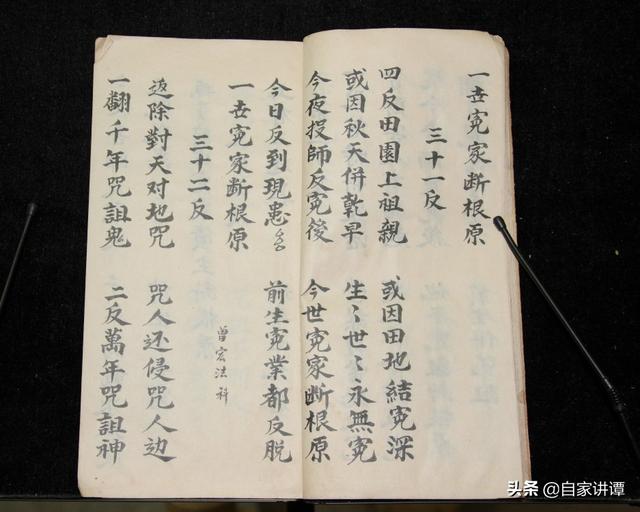 一世冤家断根原
三十一反
四反田園上祖親 或因田地結冤深
或因秋天併乾旱 生〻世〻永無冤
今夜投師反冤後 今世冤家断根原
今日反到現患名 前生冤業都反脱
一世冤家断根原
三十二反
曾宏法科
返除對天对地咒 咒人还侵咒人边
一翻千年咒詛鬼 二反萬年咒詛神
头条 @自家讲谭